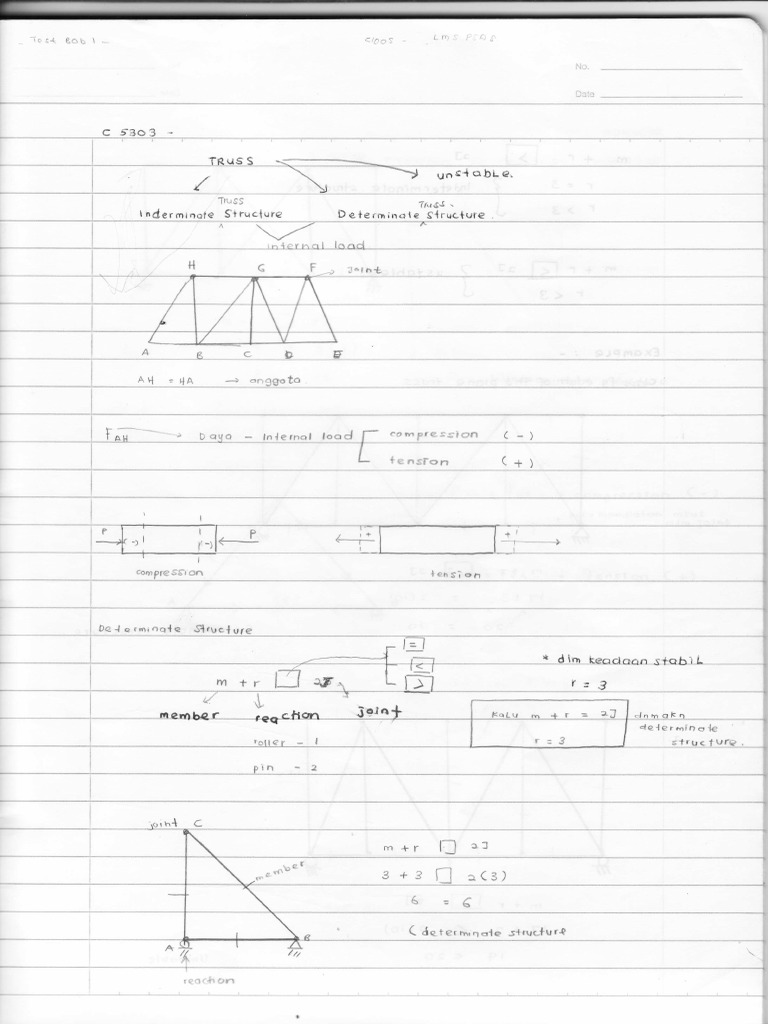 Test Bab 1 -
C1005 - LMS PSAS
No.
Date
C 5303 -
TRUSS
unstable.
Truss
Truss
Inderminate Structure
Determinate structure.
internal load
H G F joint
A B C D E
AH = HA → anggota
F AH → Daya - Internal load
compression (-)
tension (+)
P (-) (-) P
+ +
compression
tension
Determinate Structure
=
<
>
m + r 2J
* dlm keadaan stabil
r = 3
member reaction joint
roller - 1
pin - 2
Kalu m + r = 2J
r = 3
dnmakn
determinate
structure.
joint C
member
A B
reaction
m + r 2J
3 + 3 2(3)
6 = 6
( determinate structure